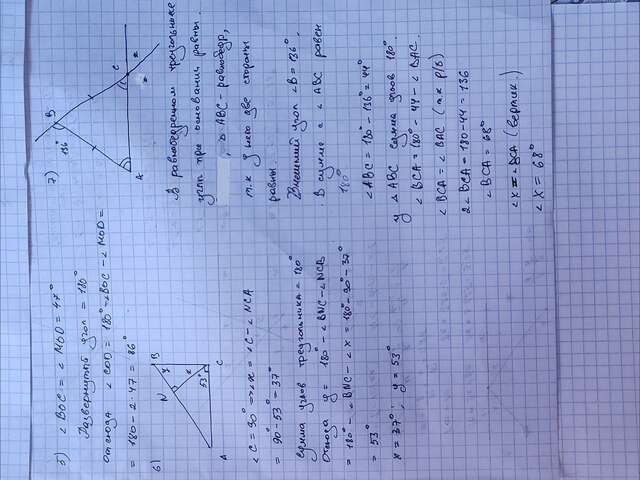 5) ∠BOC = ∠MOD = 47°
Развернутый угол = 180°
отсюда ∠COD = 180° - ∠BOC - ∠MOD =
= 180 - 2·47 = 86°
6)
B
y
N
x
53°
A
C
∠C = 90° => x = ∠C - ∠NCA
= 90° - 53° = 37°
сумма углов треугольника = 180°
Отсюда y = 180° - ∠BNC - ∠NCB
= 180° - ∠BNC - ∠x = 180° - 90° - 37°
= 53°
x = 37°; y = 53°
7)
B
136°
C
x
A
В равнобедренном треугольнике
углы при основании равны.
, △ABC - равнобедр,
т.к у него две стороны
равны.
Внешний угол ∠B = 136°,
В сумме с ∠ABC равен
180°
∠ABC = 180° - 136° = 44°
У △ABC сумма углов 180°.
∠BCA = 180° - 44 - ∠BAC.
∠BCA = ∠BAC (как р/б)
2∠BCA = 180 - 44 = 136
∠BCA = 68°
∠x = ∠BCA (вертик.)
∠x = 68°